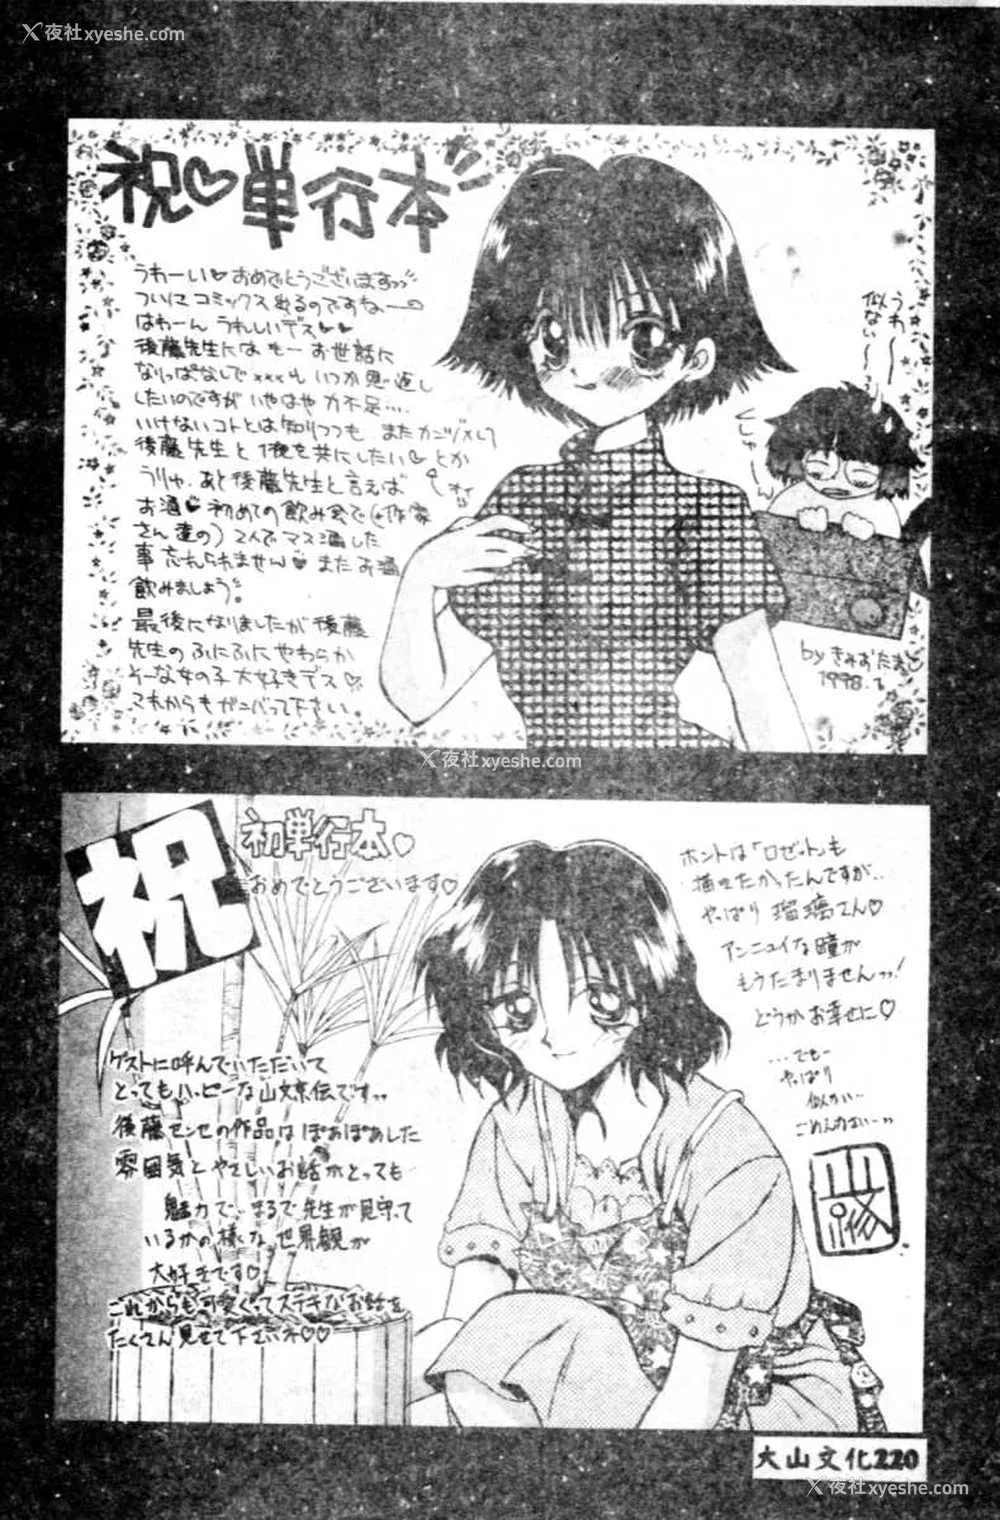 夜社xyeshe.com
夜社xyeshe.com
祝♡単行本
うわーい♥おめでとうございますっ
ついにコミックス出るのですねー
はわーん うれしいデス♥♥
後藤先生には もー お世話に
なりっぱなしで いつか恩返し
したいのですが いやはや 力不足…
いけないコトとは知りつつも またカンヅメして
後藤先生と1夜を共にしたい♡とか
うりゅ。あと後藤先生と言えば
お酒♥初めての飲み会で(作家
さん達の)2人でマス酒した
事忘れられません♥またお酒
飲みましょう。
最後になりましたが後藤
先生のふにふにやわらか
そーな女の子大好きデス♡
これからもガンバって下さい。
うわー
似ない〜〜
by きみおたまこ
1998.
夜社xyeshe.com
祝
初単行本♡
おめでとうございます♡
ゲストに呼んでいただいて
とってもハッピーな山文京伝です
後藤センセの作品は ぽあぽあした
雰囲気とやさしいお話がとっても
魅力で、まるで先生が見守って
いるかの様な世界観が
大好きです♡
これからも可愛くってステキなお話を
たくさん見せて下さいネ♡♡
ホントは「ロゼット」も
描きたかったんですが…
やっぱり 瑠璃てん♡
アンニュイな瞳が
もうたまりませんっ!
どうかお幸せに♡
…でもー
やっぱり
似ない…
ごめんなさいー
大山文化220
夜社xyeshe.com